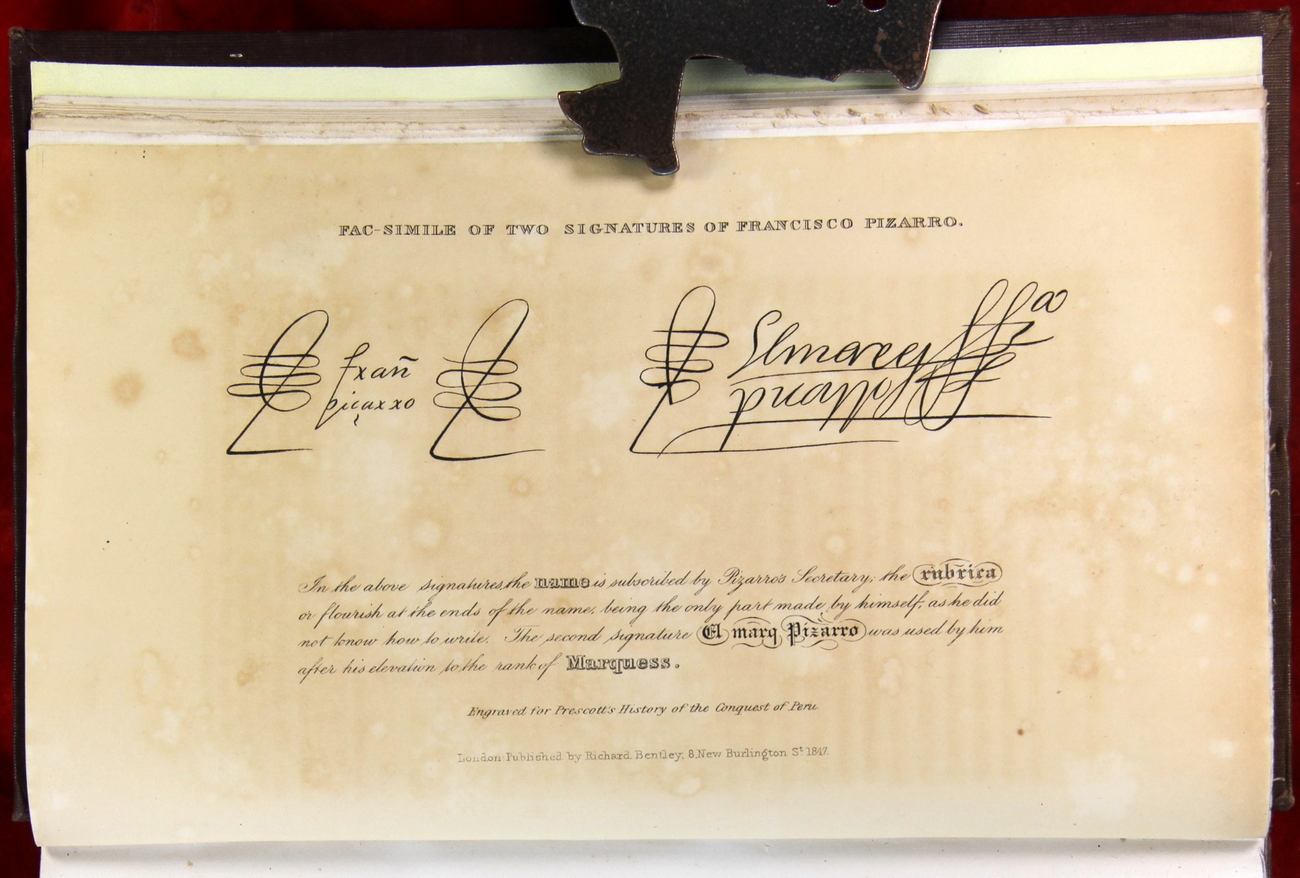 FAC-SIMILE OF TWO SIGNATURES OF FRANCISCO PIZARRO.
frañ
piçarro
El marq
piçarro
In the above signatures, the name is subscribed by Pizarro's Secretary; the rubrica
or flourish at the ends of the name, being the only part made by himself, as he did
not know how to write. The second signature El marq Pizarro was used by him
after his elevation to the rank of Marquess.
Engraved for Prescott's History of the Conquest of Peru
London Published by Richard Bentley, 8, New Burlington St. 1847.